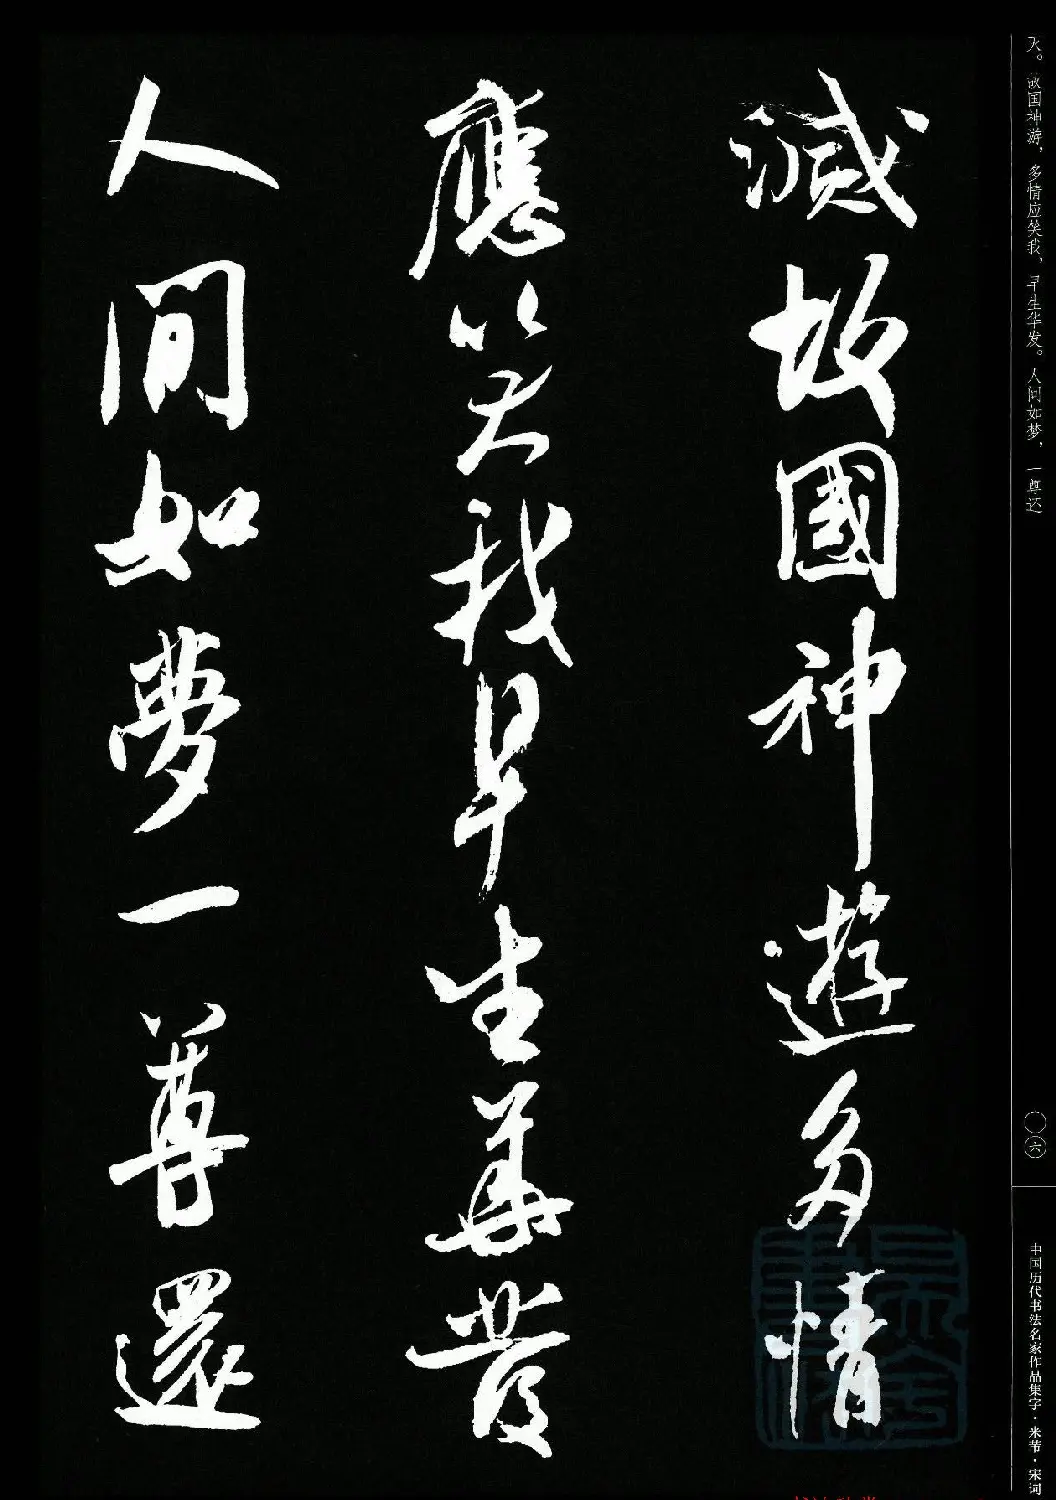 滅故國神遊多情
應笑我早生華發
人間如夢一尊還
灭。故国神游，多情应笑我，早生华发。人间如梦，一尊还
〇六
中国历代书法名家作品集字·米芾·宋词